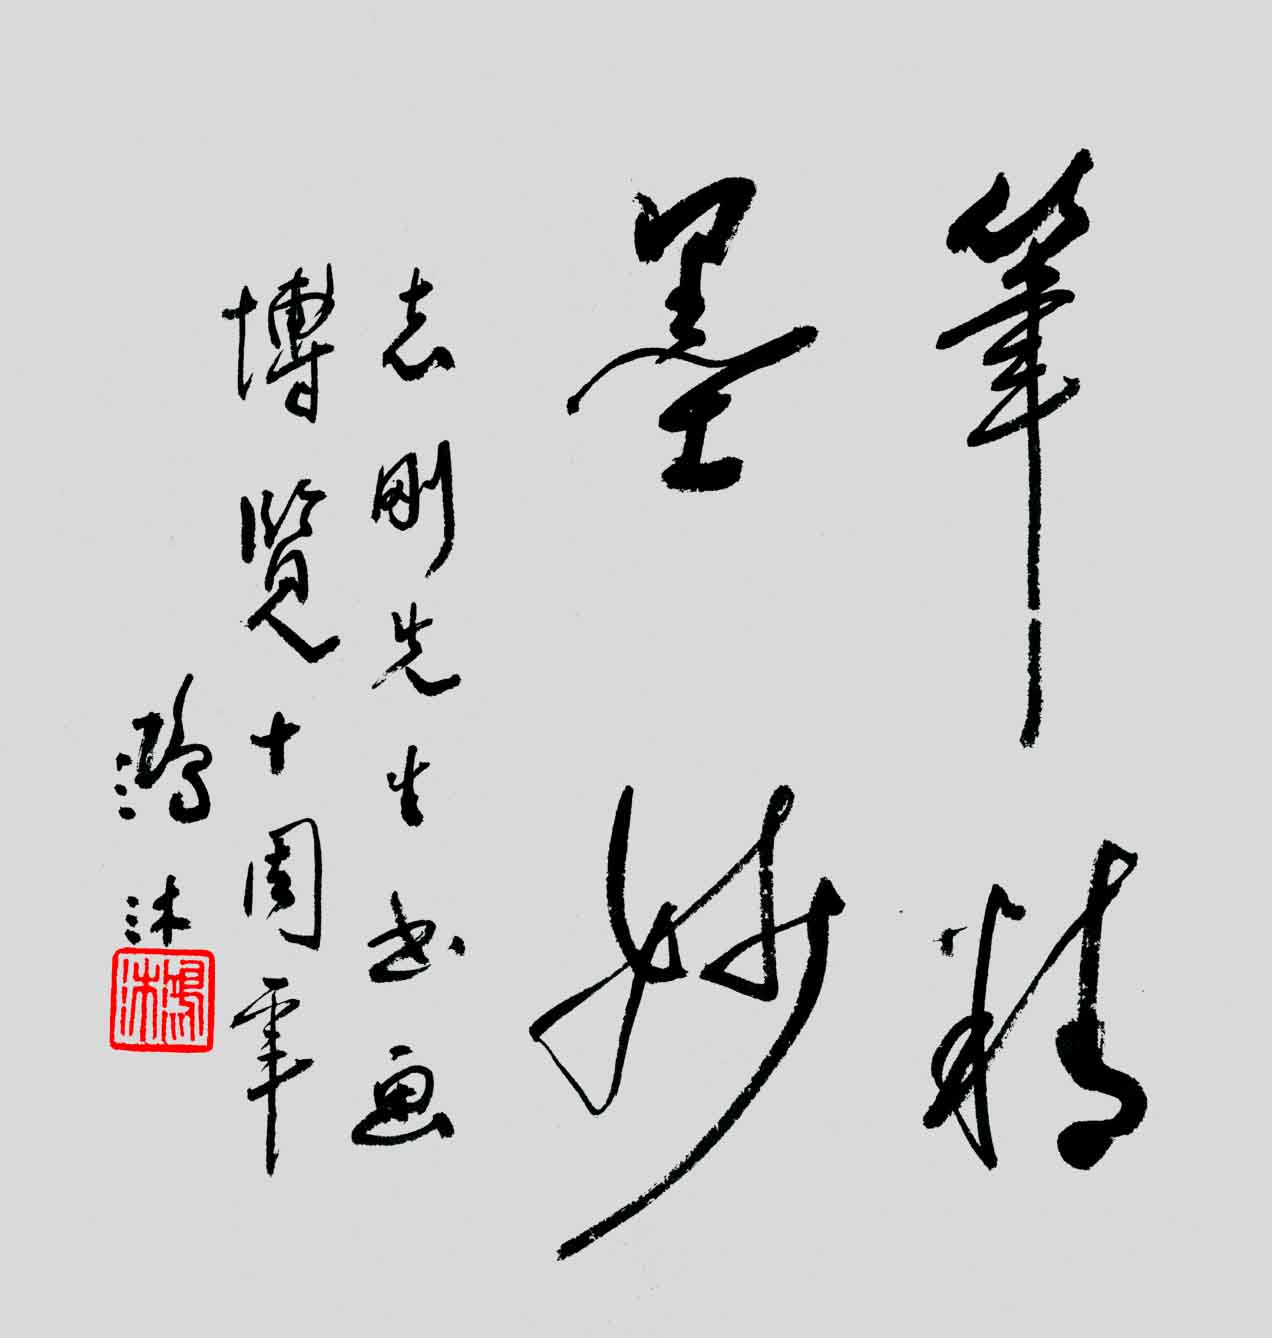 筆精
墨妙
志刚先生书画
博览十周年
鸿沐
鸿沐